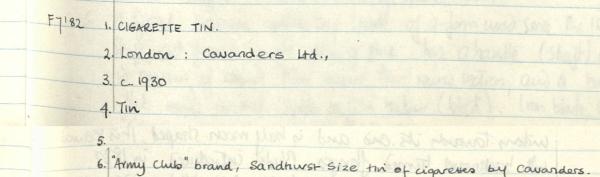 F7'82 1. CIGARETTE TIN.
2. London : Cavanders Ltd.,
3. c. 1930
4. Tin
5.
6. "Army Club" brand, Sandhurst Size tin of cigarettes by Cavanders.